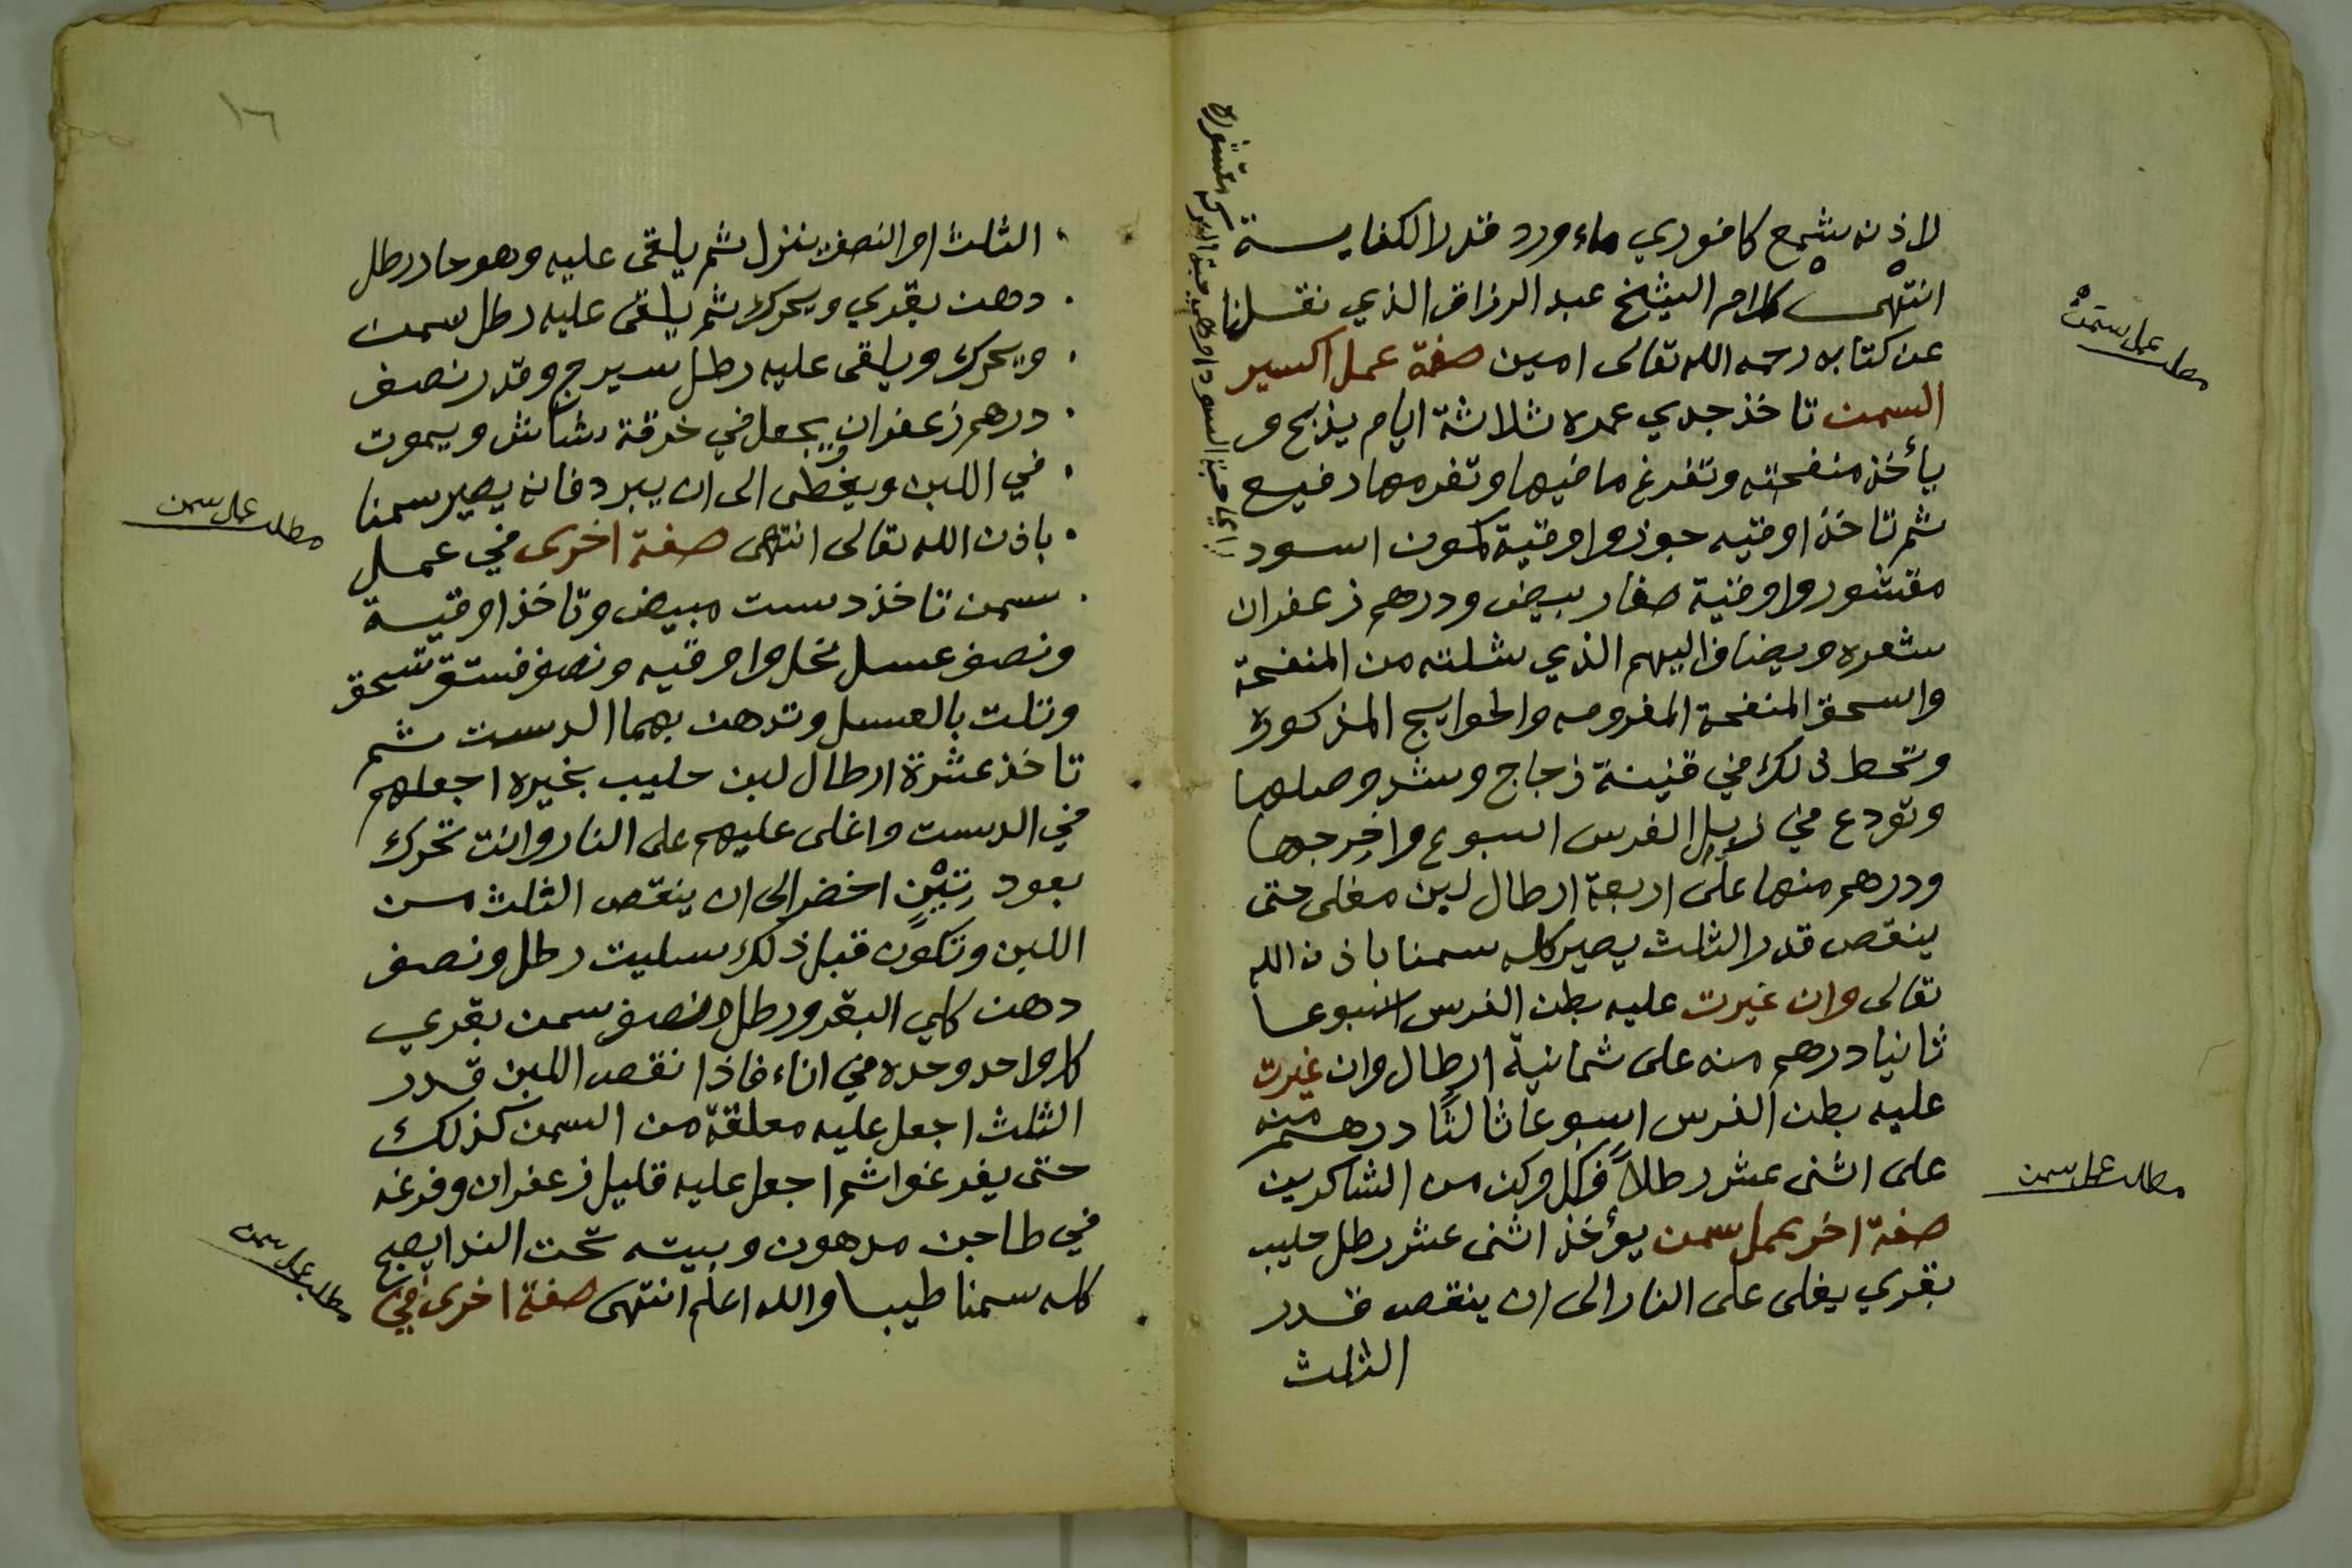 لاذن شمع كافوري ماء ورد قدر الكفايسة
انتهى كلام الشيخ عبد الرزاق الذي نقلنا
عن كتابه رحمه الله تعالى امين صفة عمل اكسير
السمن تاخذ جدي عمره ثلاثة ايام يذبح و
يأخذ منفحته وتفرغ ما فيها وتفرمها رفيع
ثم تاخذ اوقيه جوز واوقية كمون اسود
مقشور واوقية صفار بيض ودرهم زعفران
شعره ويضاف اليهم الذي شلته من المنفحة
واسحق المنفحة المفرومه والحوايج المذكورة
وتحط ذلك في قنينة زجاج وشد وصلها
وتودع في زبل الفرس اسبوع واخرجها
ودرهم منها على اربعة ارطال لبن مغلى حتى
ينقص قدر الثلث يصير كله سمنا باذن الله
تعالى وان غيرت عليه بطن الفرس اسبوعا
ثانيا درهم منه على ثمانية ارطال وان غيرت
عليه بطن الفرس اسبوعا ثالثا درهم منه
على اثنى عشر رطلاً فكل وكن من الشاكرين
صفة اخر بعمل سمن يؤخذ اثنى عشر رطل حليب
بقري يغلى على النار الى ان ينقص قدر
الثلث
مطلب عمل سمن
مطلب عمل سمن
حبة السودا وهي حبة البركه مقشوره
١٦
الثلث او النصف ينزل ثم يلقى عليه وهو حار رطل
دهن بقري ويحرك ثم يلقى عليه رطل سمن
ويحرك ويلقى عليه رطل سيرج وقدر نصف
درهم زعفران يجعل في خرقة شاش ويموت
في اللبن ويغطى الى ان يبرد فانه يصير سمنا
باذن الله تعالى انتهى صفة اخرى في عمل
سمن تاخذ دست مبيض وتاخذ اوقية
ونصف عسل نحل واوقيه ونصف فستق تسحق
وتلت بالعسل وتدهن بهما الدست ثم
تاخذ عشرة ارطال لبن حليب بخيره اجعلهم
في الدست واغلى عليهم على النار وانت تحرك
بعود تين اخضر الى ان ينقص الثلث من
اللبن وتكون قبل ذلك سليت رطل ونصف
دهن كلي البقر ورطل ونصف سمن بقري
كل واحد وحده في اناء فاذا نقص اللبن قدر
الثلث اجعل عليه معلقة من السمن كذلك
حتى يفرغوا ثم اجعل عليه قليل زعفران وفرغه
في طاجن مدهون وبيته تحت الندا يصبح
كله سمنا طيبا والله اعلم انتهى صفة اخرى في
مطلب عمل سمن
مطلب عمل سمن